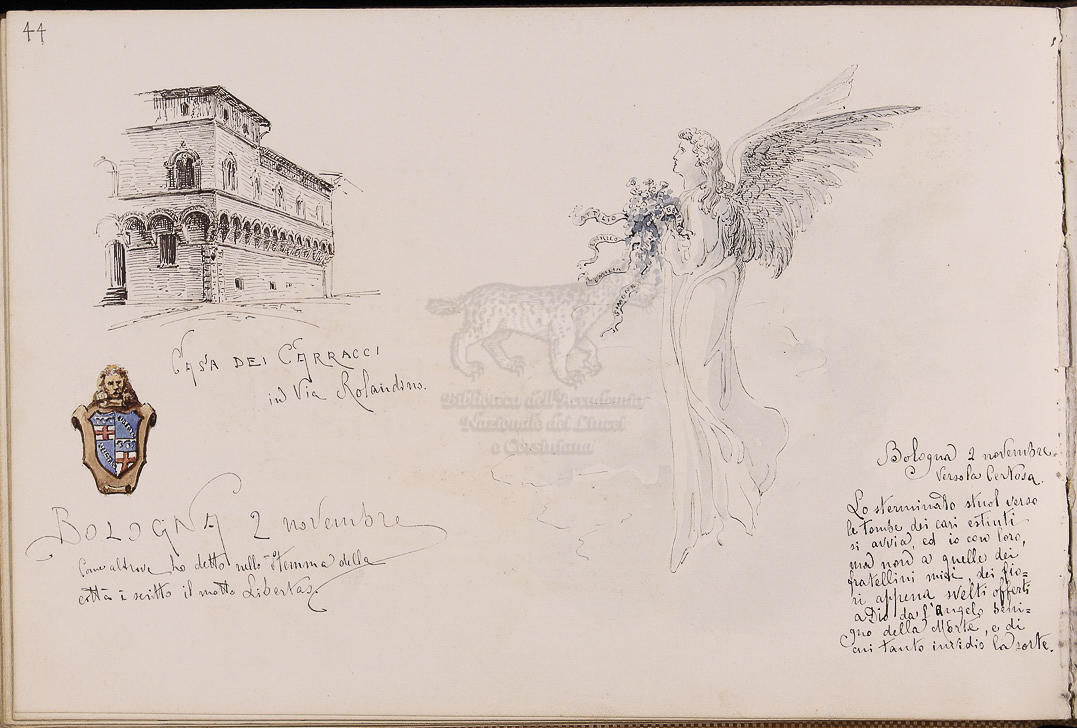 44
CASA DEI CARRACCI
in Via Rolandino.
BOLOGNA 2 novembre
Come altrove ho detto nello Stemma della
città è scritto il motto Libertas.
Biblioteca dell'Accademia
Nazionale dei Lincei
e Corsiniana
SIMONE
Bologna 2 novembre.
Verso la Certosa.
Lo sterminato stuol verso
le tombe dei cari estinti
si avvia, ed io con loro,
ma non a quelle dei
fratellini miei, dei fio=
ri appena svelti offerti
a Dio da l'Angelo beni=
gno della Morte, e di
cui tanto invidio la sorte.